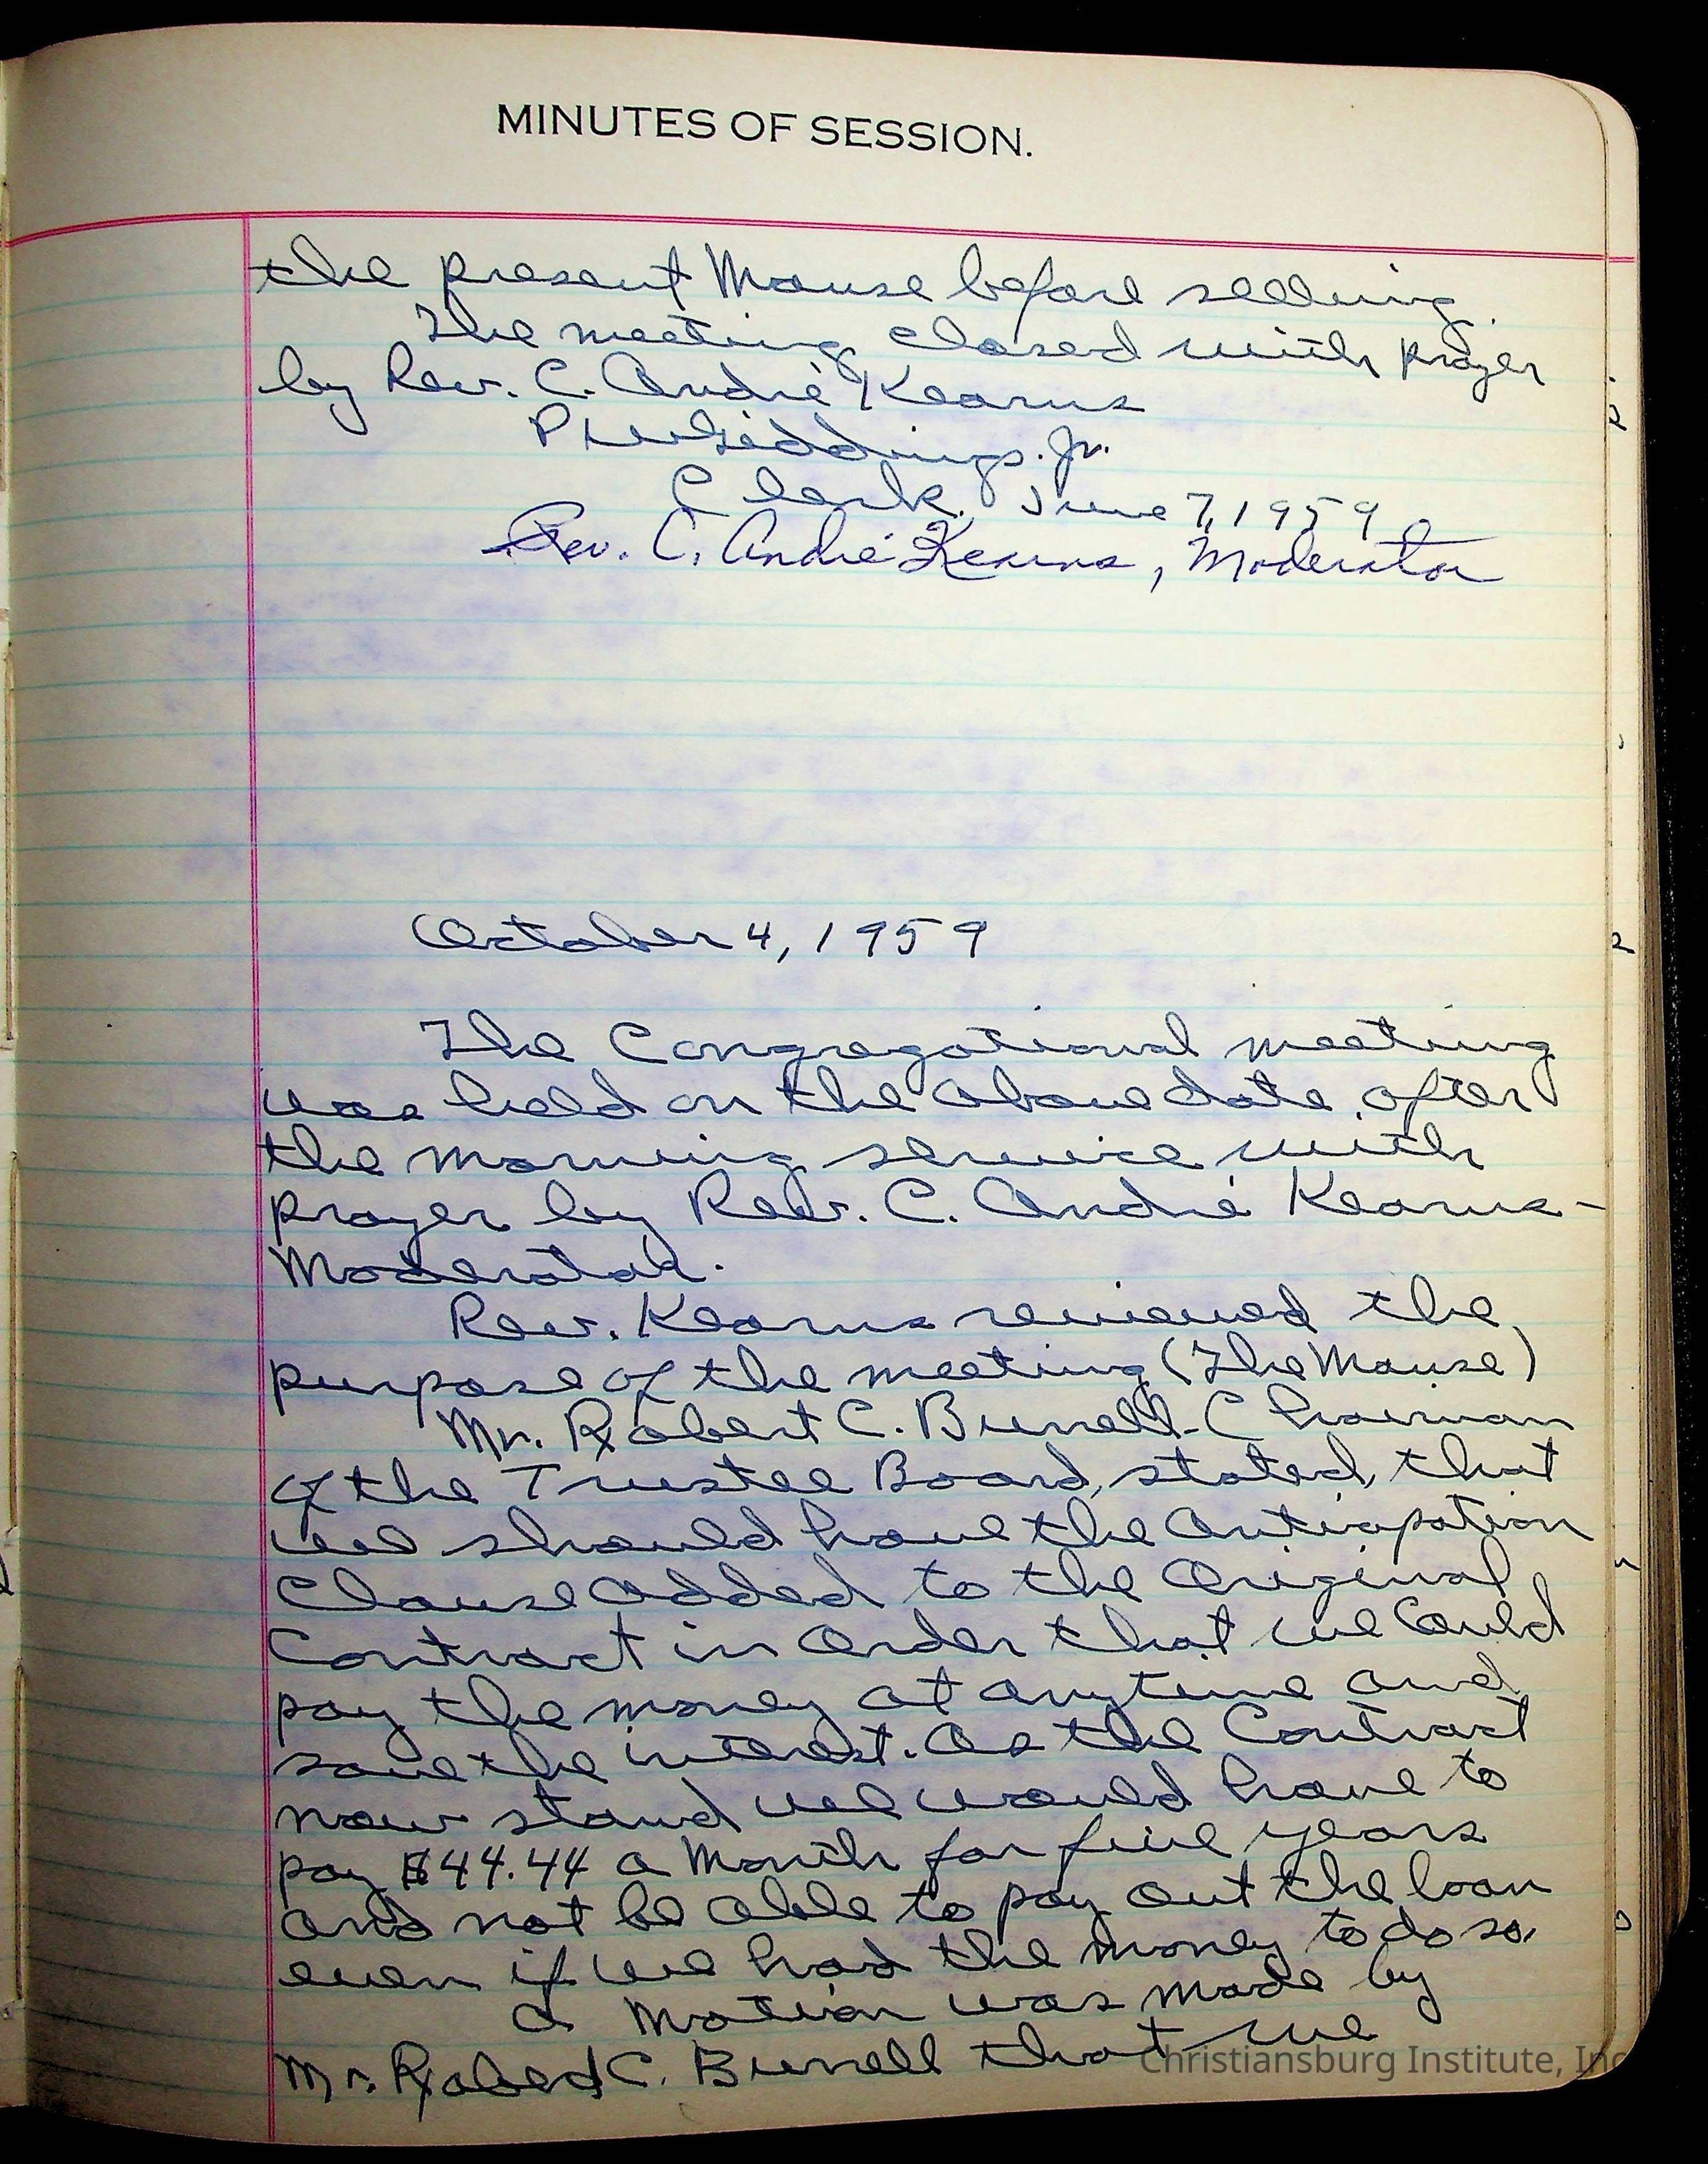 MINUTES OF SESSION.
the present Manse before selling.
The meeting closed with prayer
by Rev. C. André Kearns
P W Giddings. Jr.
Clerk. June 7, 1959
Rev. C. André Kearns, Moderator
October 4, 1959
The Congregational meeting
was held on the above date, after
the morning service with
prayer by Rev. C. André Kearns-
Moderator.
Rev. Kearns reviewed the
purpose of the meeting (The Manse)
Mr. Robert C. Burrell-Chairman
of the Trustee Board, stated, that
we should have the Anticipation
Clause added to the Original
Contract in order that we could
pay the money at anytime and
save the interest. As the Contract
now stand we would have to
pay $44.44 a month for five years
and not be able to pay out the loan
even if we had the money to do so.
A motion was made by
Mr. Robert C. Burrell that we
Christiansburg Institute, Inc